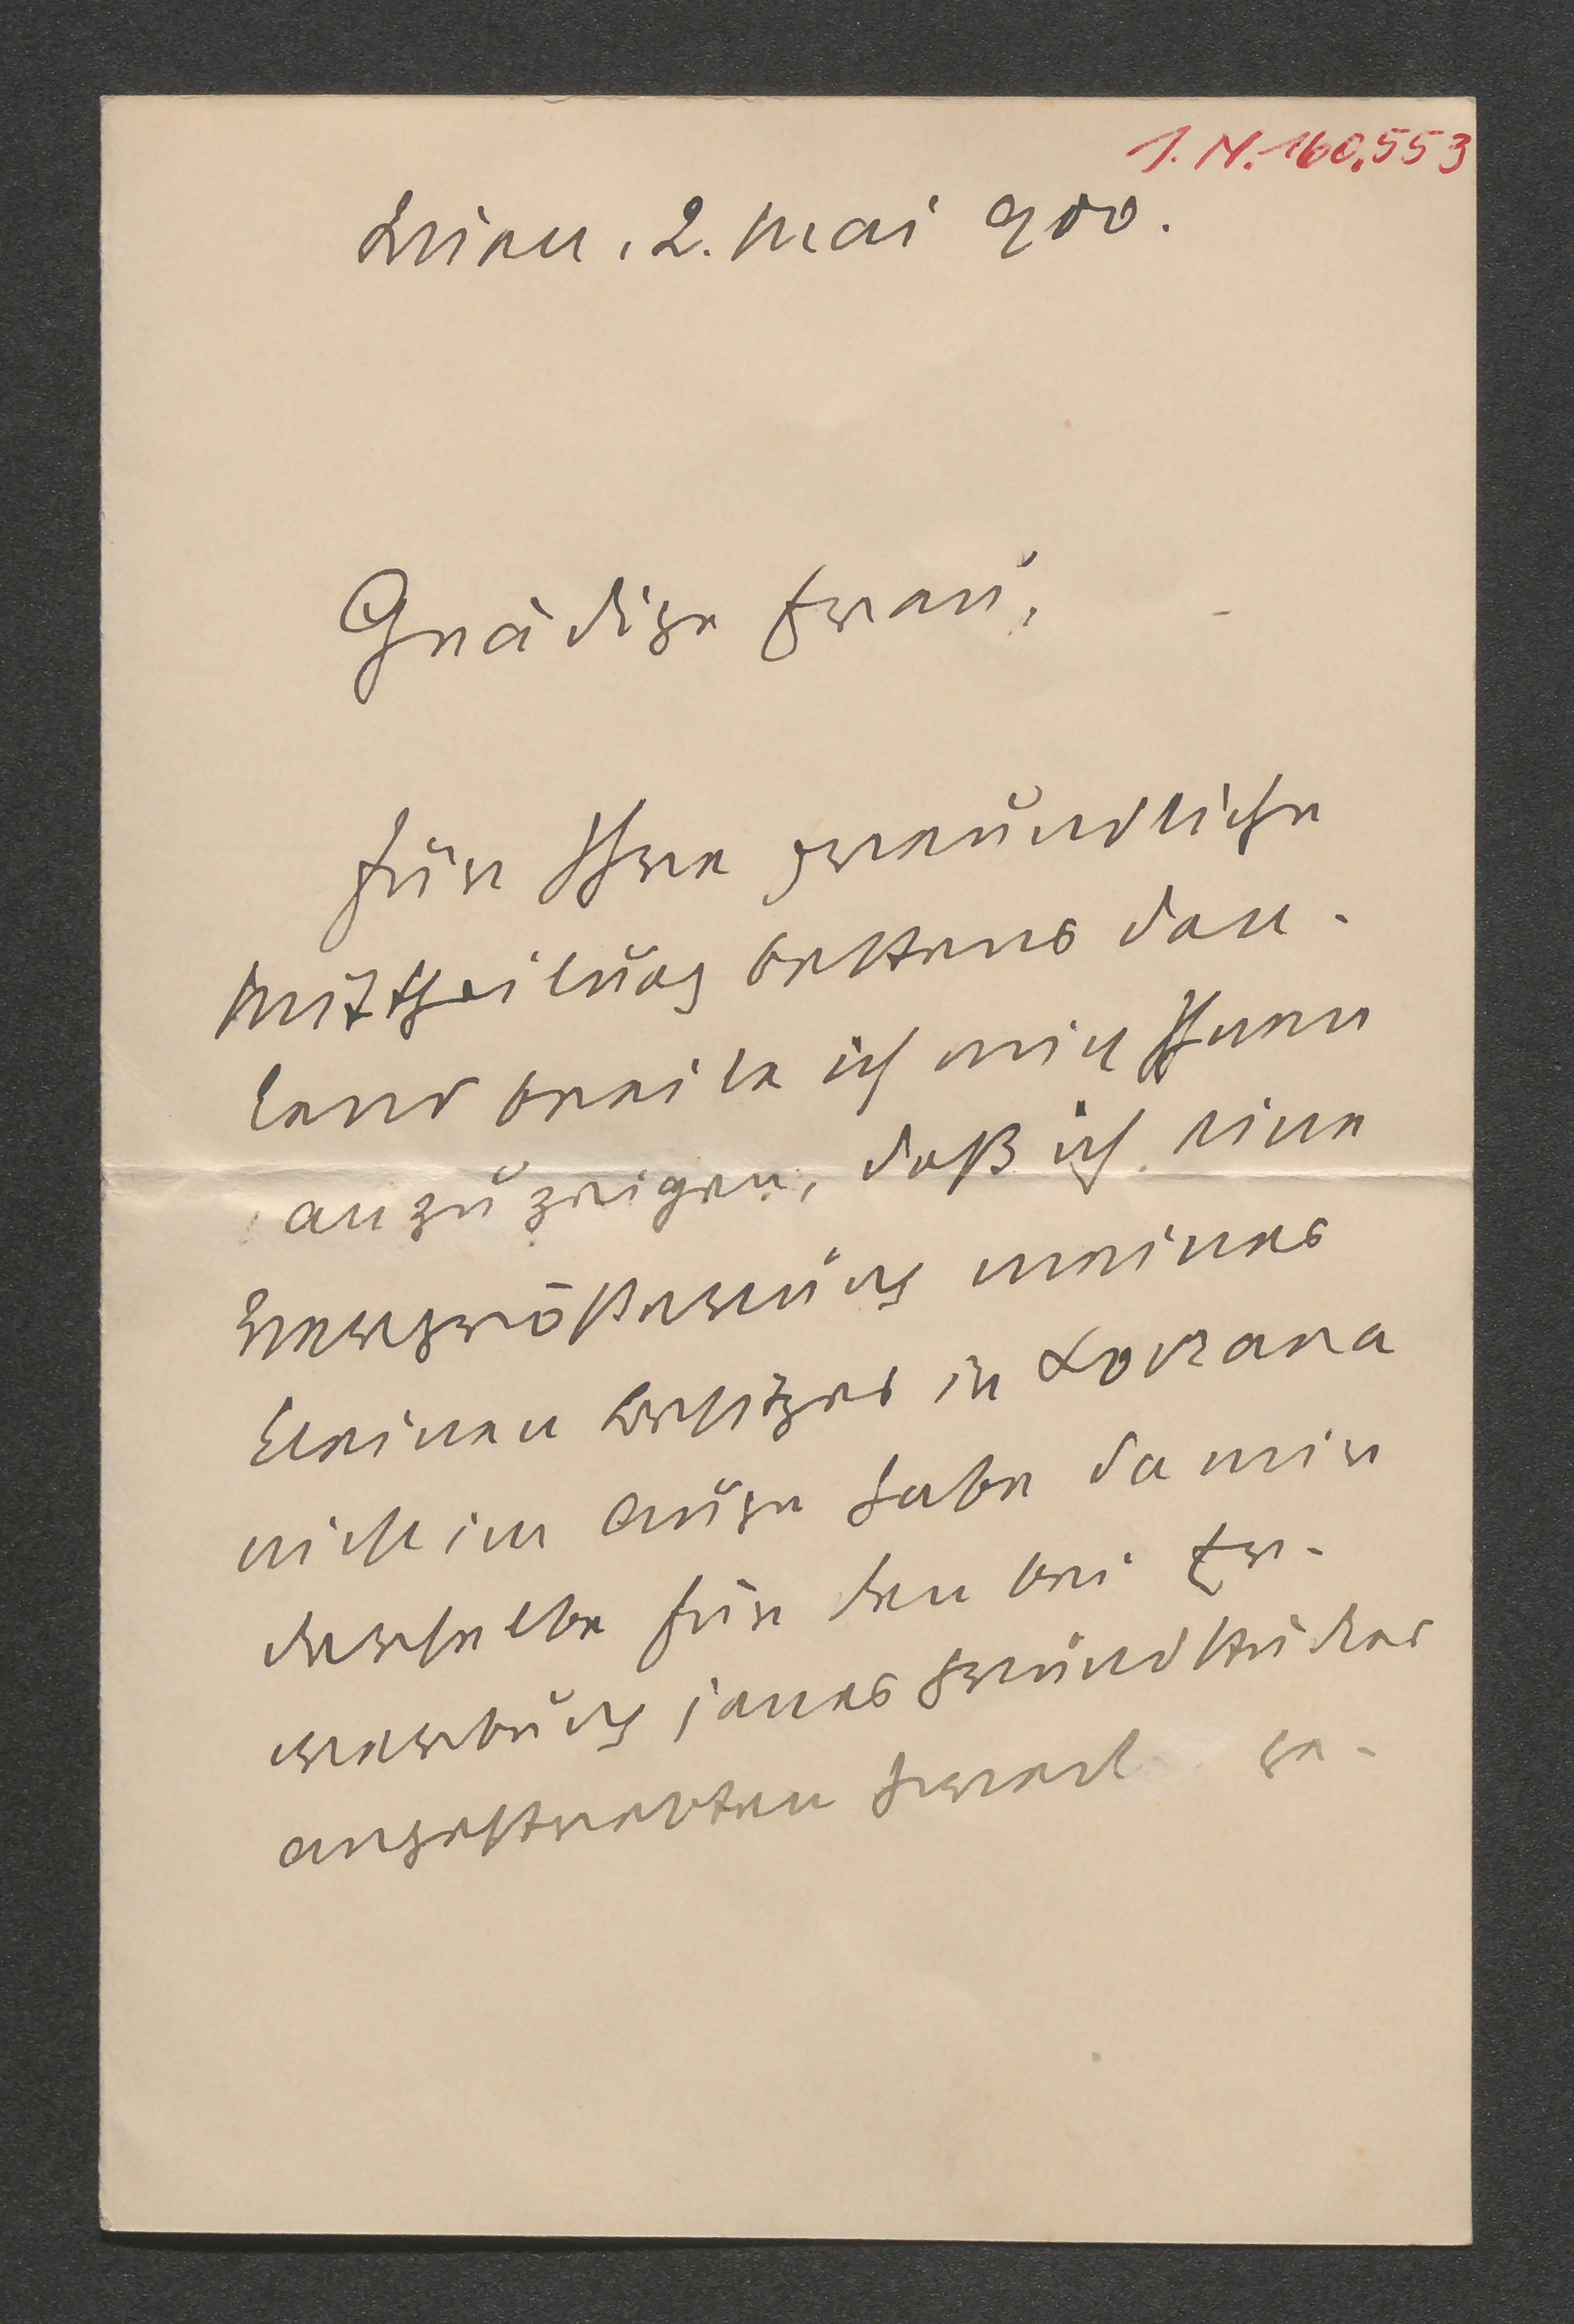 I. N. 160.553
Wien, 2. Mai 900.
Gnädige Frau,
für Ihre freundliche
Mittheilung bestens dan-
kend beeile ich mich Ihnen
anzuzeigen, daß ich eine
Vergrößerung meines
kleinen Besitzes in Lovrana
nicht im Auge habe da mir
derselbe für den bei Er-
werbung jenes Grundstückes
angestrebten Zweck ge-